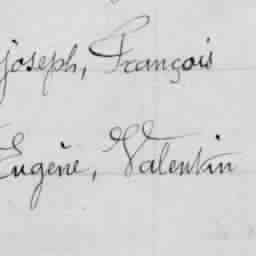 joseph, François
Eugène, Valentin